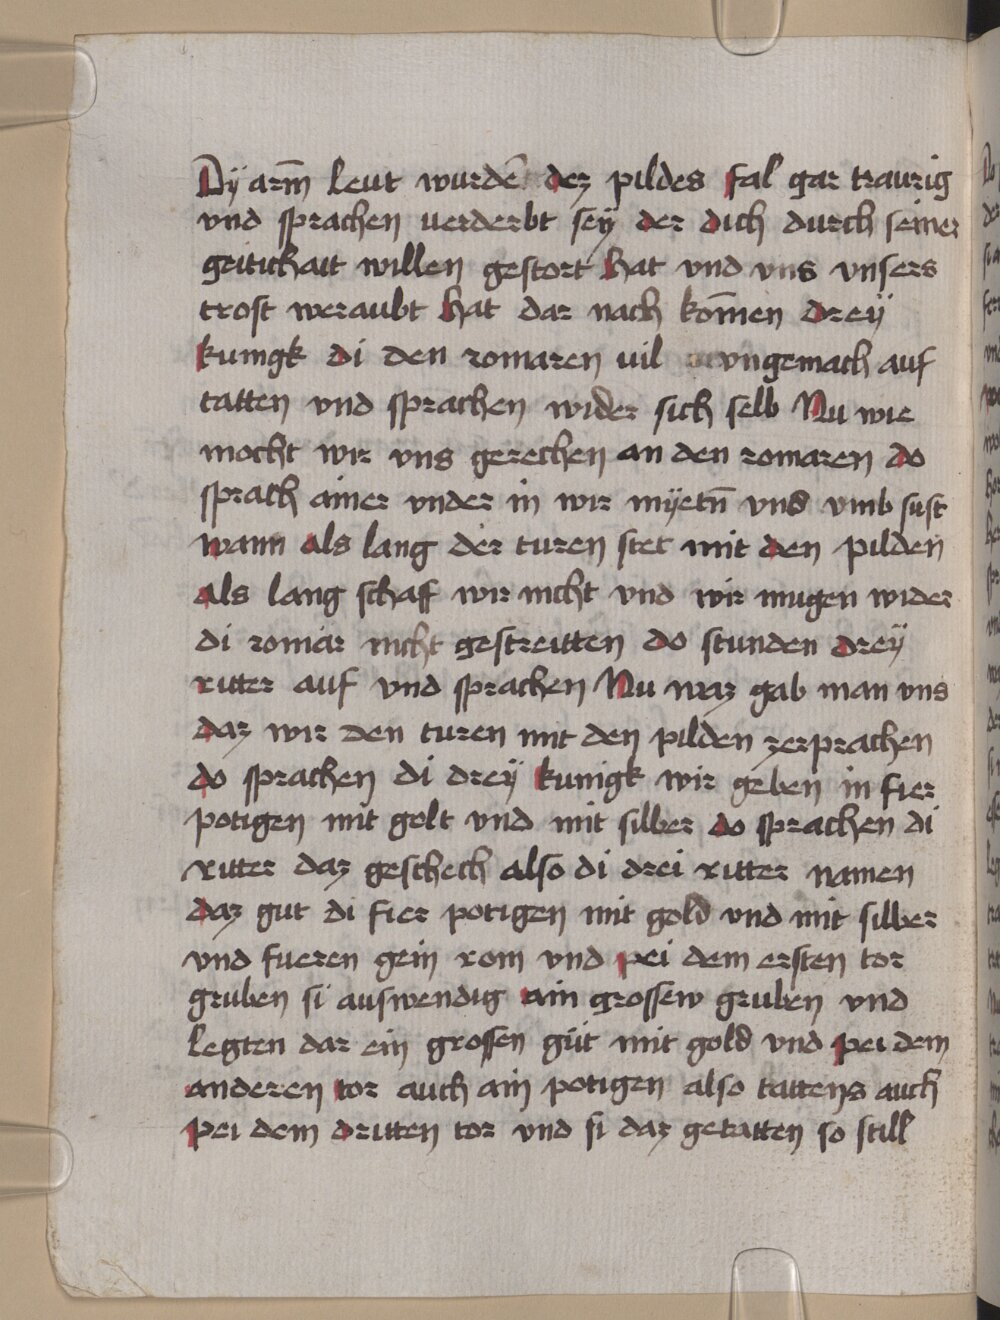 Dÿ arm̄ leut wurdē dez pildes fal gar traurig
vnd sprachen verderbt seÿ der dich durch seiner
geitichait willen gestort hat vnd vns vnsers
trost weraubt hat dar nach kōmen dreÿ
kunigk di den romaren vil vngemach auf
tatten vnd sprachen wider sich selb Nu wie
mocht wir vns gerechen an den romaren do
sprach ainer vnder in wir mÿetn̄ vns vmb sust
wann als lang der turen stet mit den pilden
als lang schaff wir nicht vnd wir mugen wider
di romar nicht gestreitten do stunden dreÿ
ritter auf vnd sprachen Nu waz gab man vns
daz wir den turen mit den pilden zerprachen
do sprachen di dreÿ kunigk wir geben in fier
potigen mit golt vnd mit silber do sprachen di
ritter daz geschech also di drei ritter namen
daz gut di fier potigen mit gold vnd mit silber
vnd fueren gein rom vnd pei dem ersten tor
gruben si auswendig ain grossew gruben vnd
legten dar ein grossen gut mit gold vnd pei dem
anderen tor auch ain potigen also tattens auch
pei dem dritten tor vnd si daz getatten so still